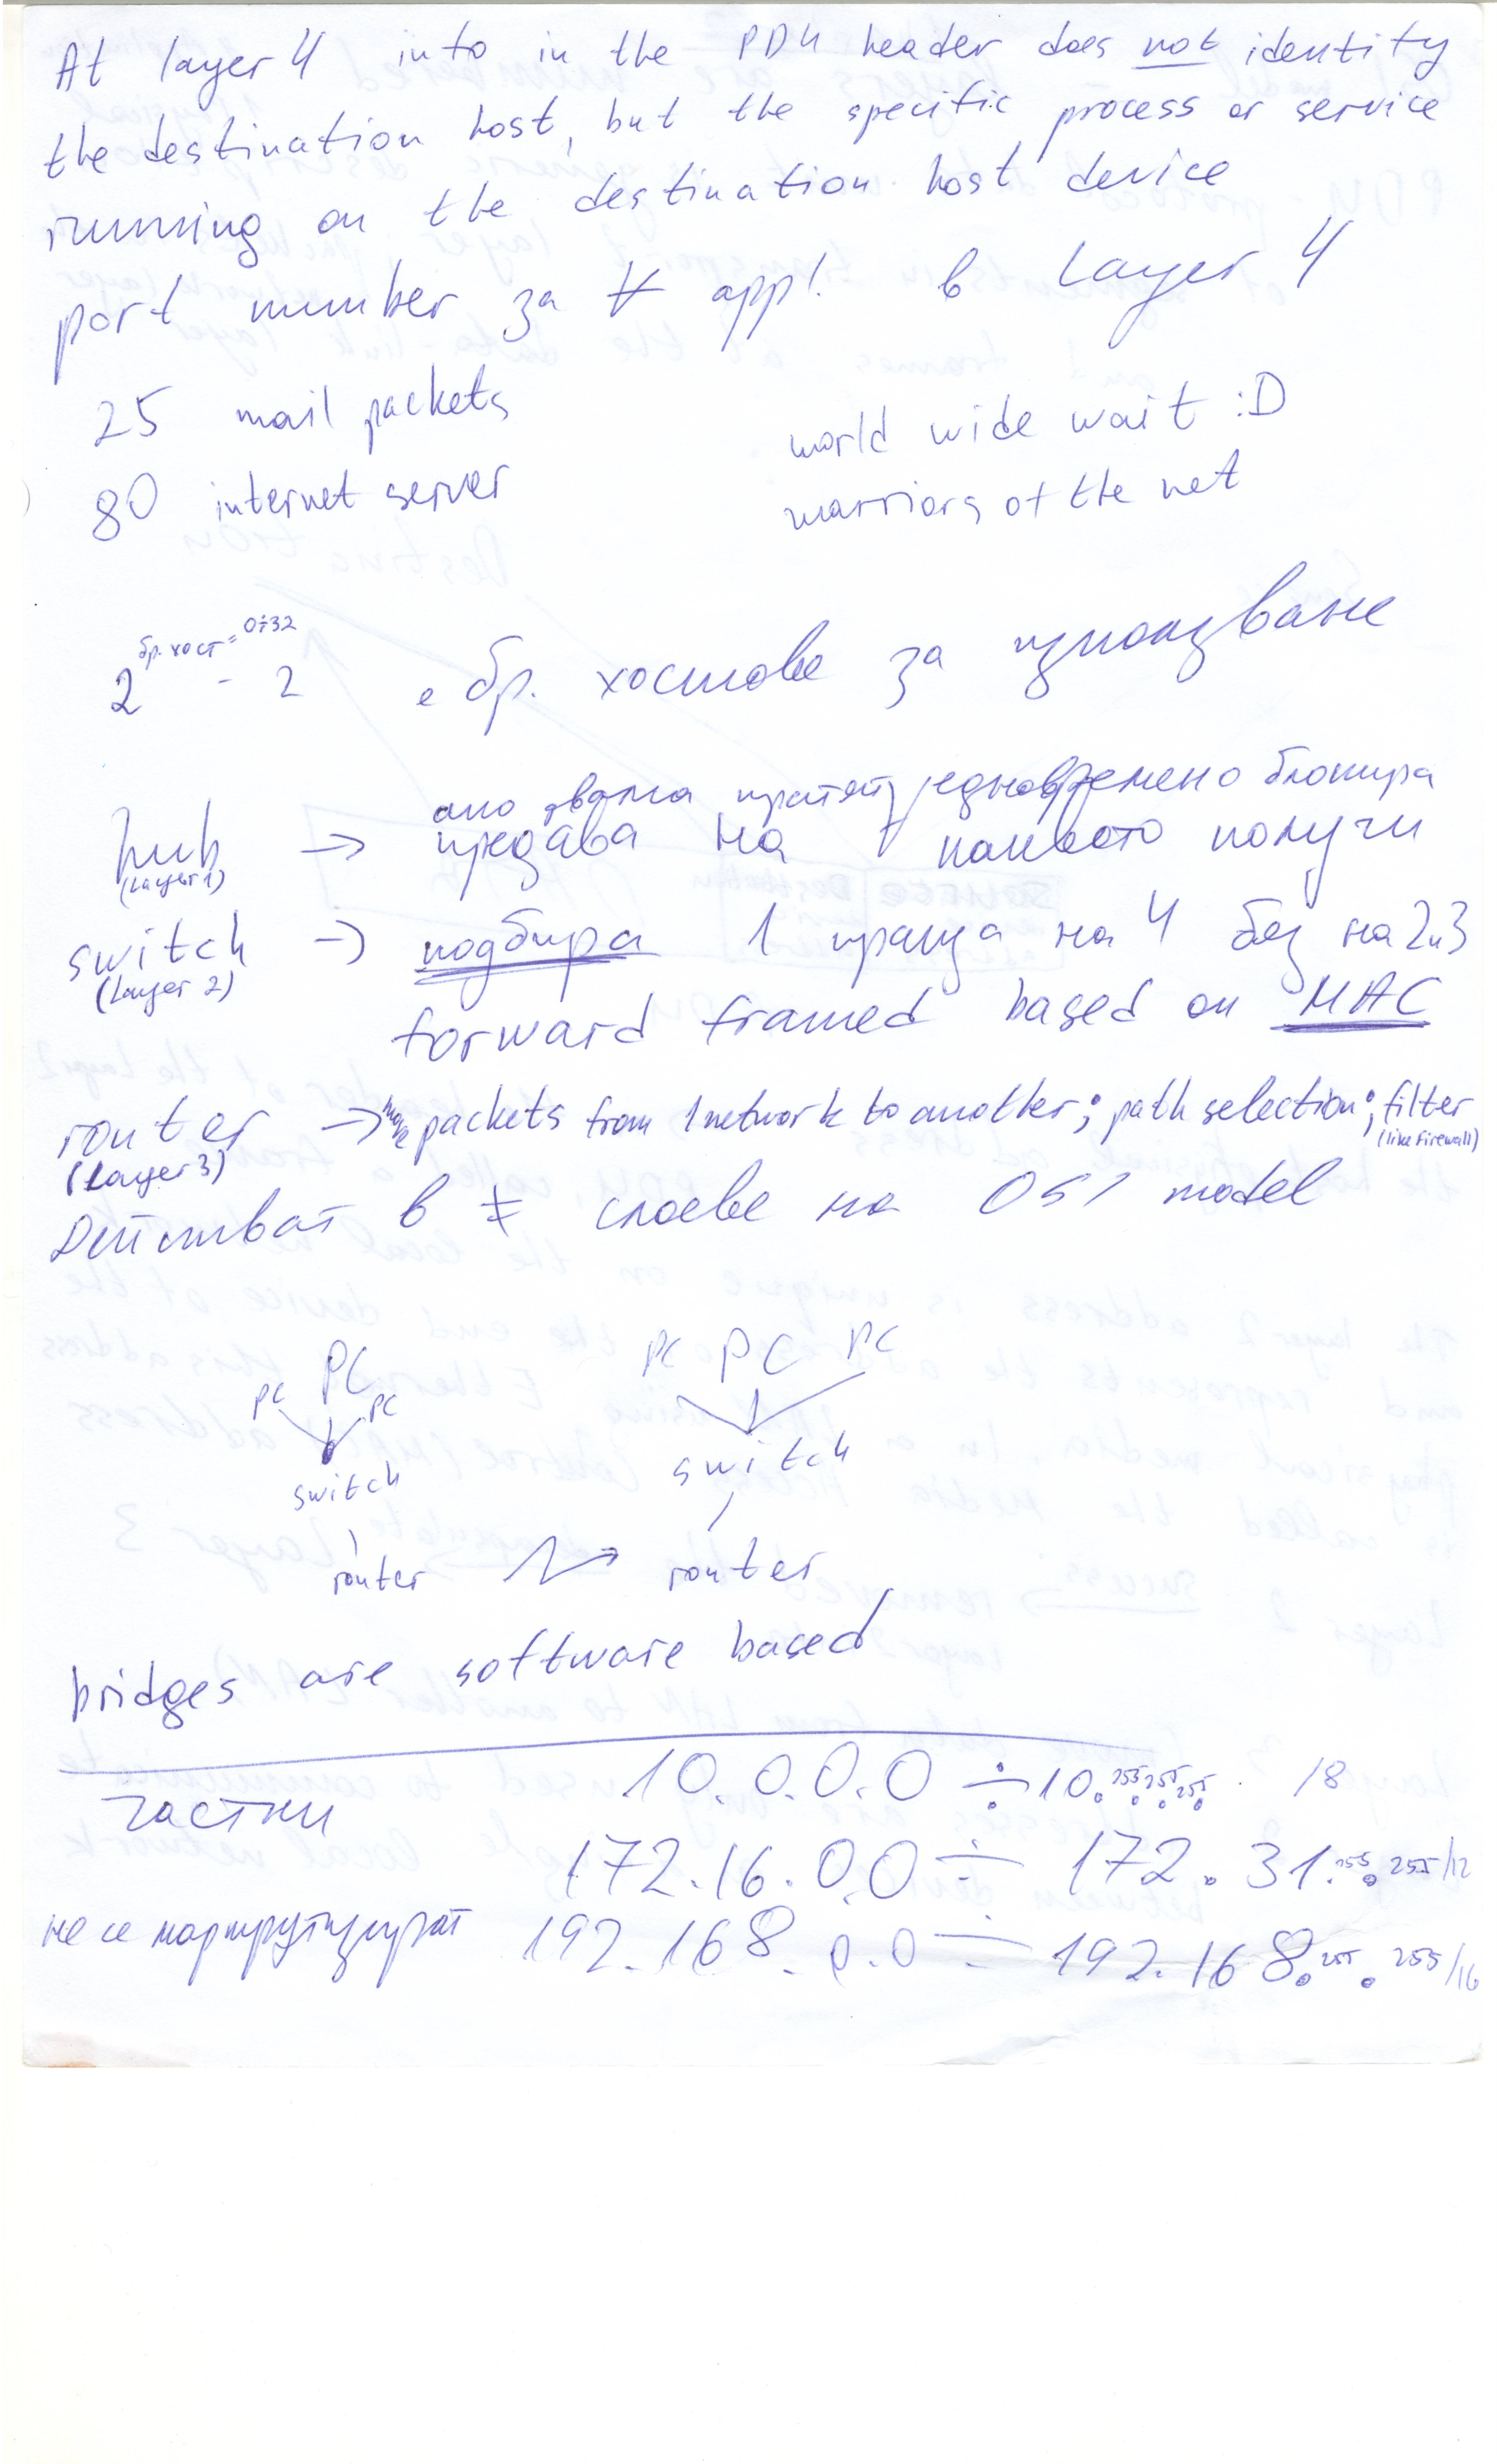 At layer 4 info in the PDU header does not identify
the destination host, but the specific process or service
running on the destination host device
port number за ∀ appl. в Layer 4
25 mail packets
world wide wait :D
80 internet server
warriors of the net
2^бр. хост = 0÷32 - 2 е бр. хостове за използване
ако двама пратят едновремено блокира
hub → предава на ∀ каквото получи
(Layer 1)
switch → подбира 1 праща на 4 без на 2 и 3
(Layer 2)
forward framed based on MAC
router → move packets from 1 network to another; path selection; filter
(Layer 3)
(like firewall)
Действат в ≠ слоеве на OSI model
PC PC PC
PC PC PC
switch
switch
router
router
bridges are software based
частни
10.0.0.0 ÷ 10.255.255.255 /8
172.16.0.0 ÷ 172.31.255.255/12
не се маршрутизират 192.168.0.0 ÷ 192.168.255.255/16